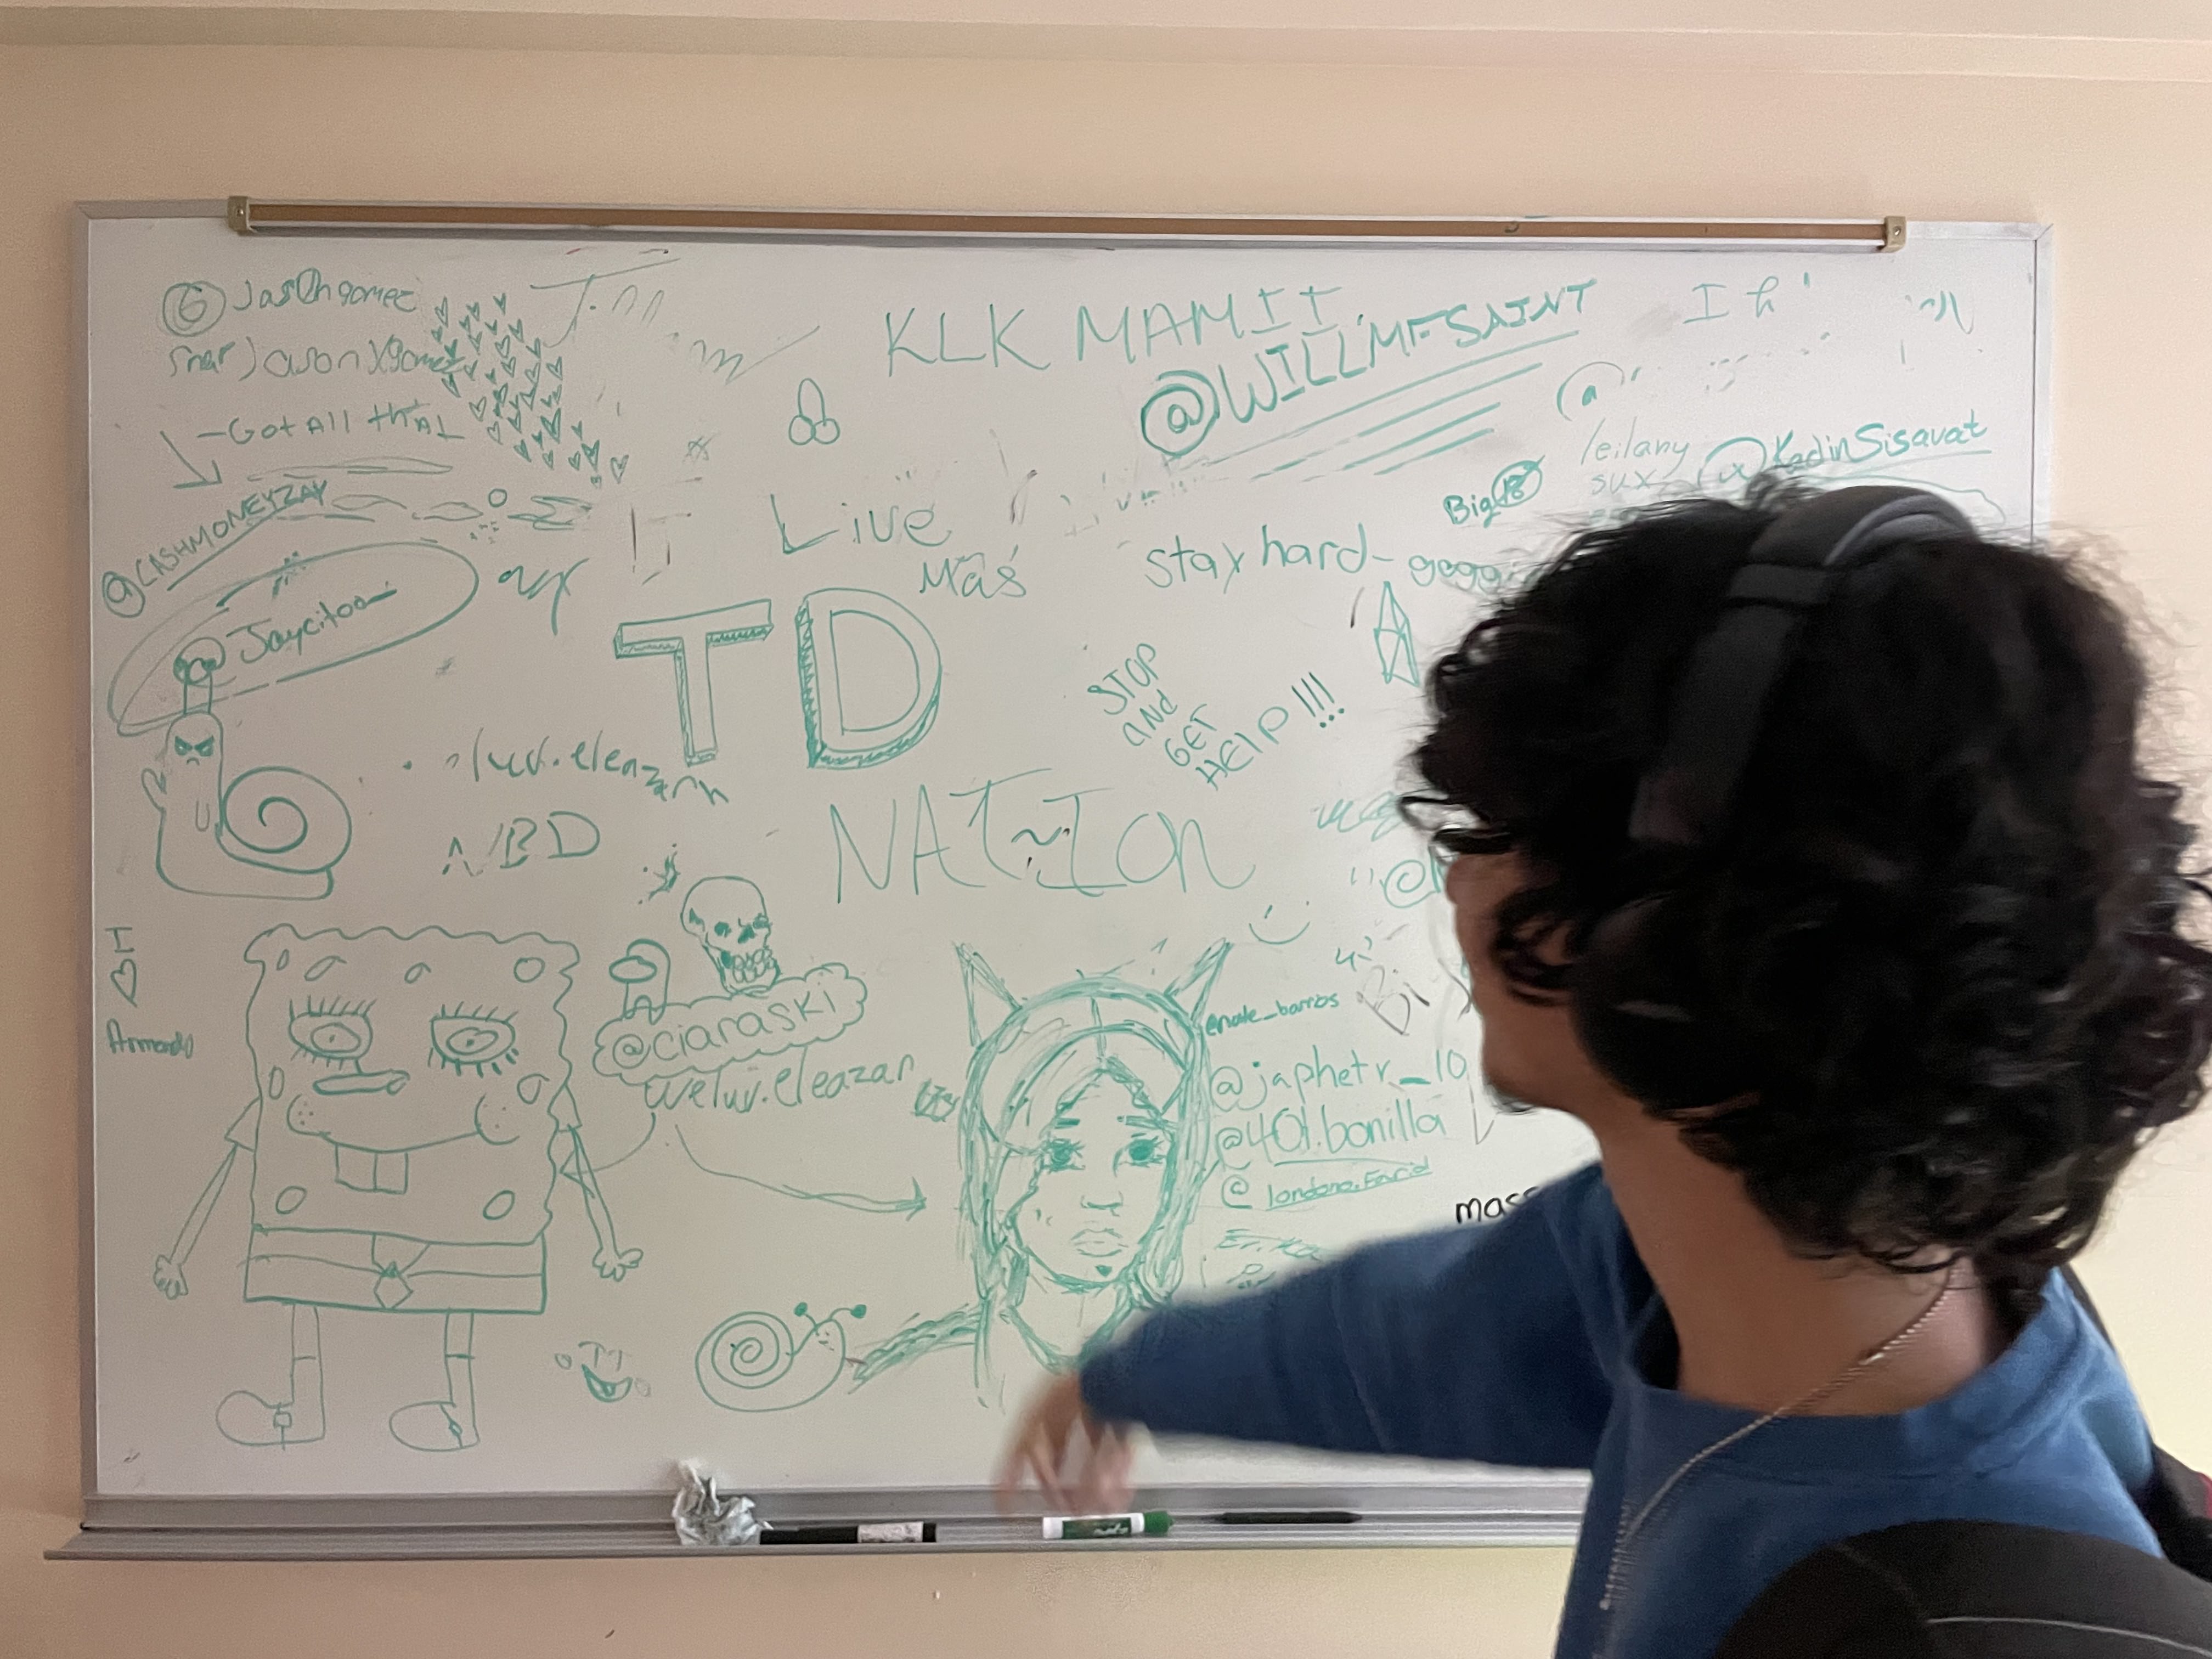 Jas0ngomez
snap JasonXgomez
-Got All thAt
@CASHMONEYZAY
@Jaycitoo
KLK MAMII
@WILLMFSAINT
I
@
leilany
sux
@KadinSisavat
Big
Live
Más
stay hard-
TD
NATION
STOP
aNd
GET
HElP!!!
luv.eleazarr
NBD
I
♡
Armando
@ciaraski
weluv.eleazar
@nate_barros
@japhetv_10
@401.bonilla
@londono.Farid